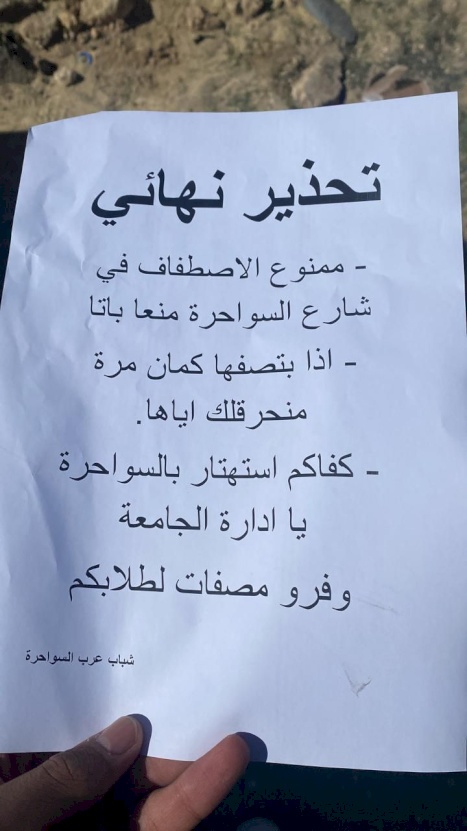 تحذير نهائي
- ممنوع الاصطفاف في
شارع السواحرة منعا باتا
- اذا بتصفها كمان مرة
منحرقلك اياها.
- كفاكم استهتار بالسواحرة
يا ادارة الجامعة
وفرو مصفات لطلابكم
شباب عرب السواحرة